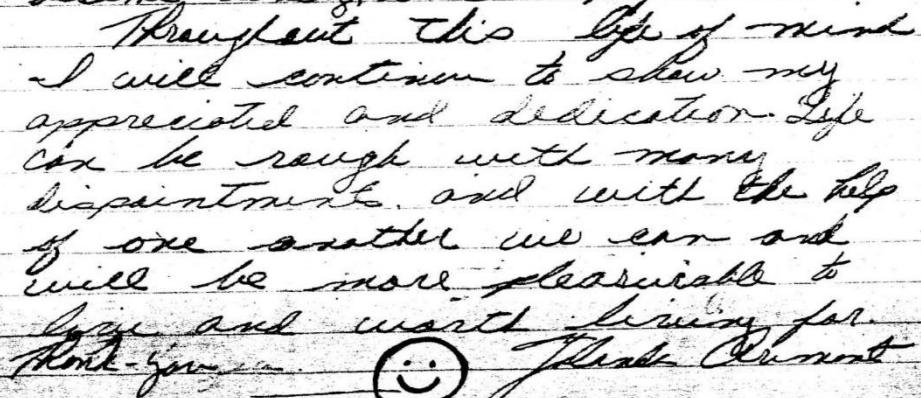 Throughout this life of mind
I will continue to show my
appreciated and dedication. Life
can be rough with many
dispointments. and with the help
of one another we can and
will be more pleasurable to
and worth living for.
Thank-you